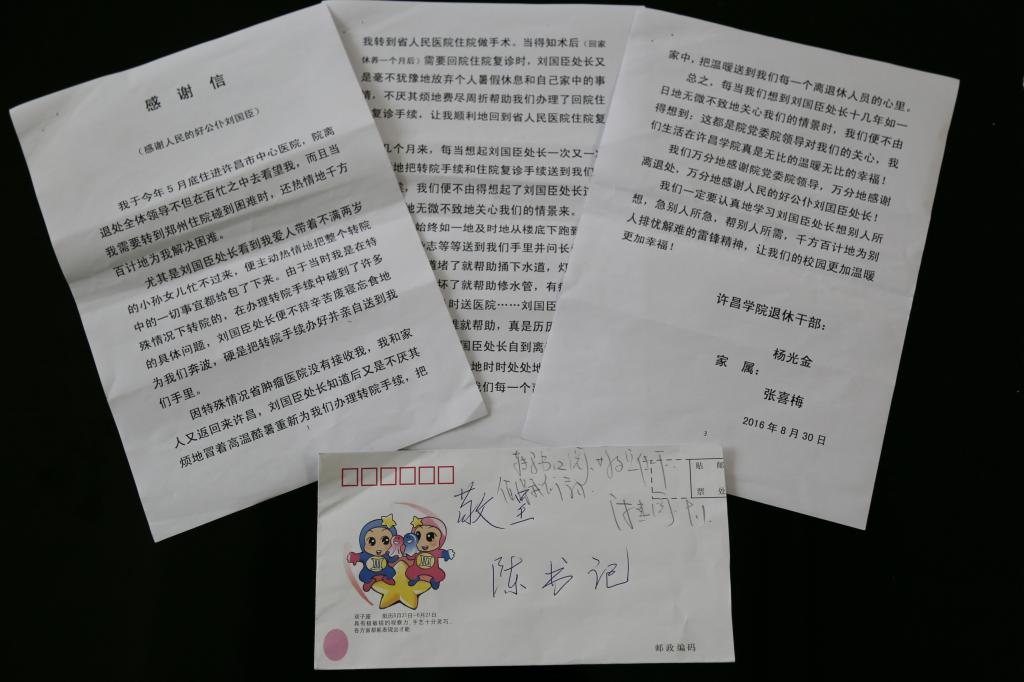 感 谢 信
(感谢人民的好公仆刘国臣)
我于今年5月底住进许昌市中心医院，院离
退处全体领导不但在百忙之中去看望我，而且当
我需要转到郑州住院碰到困难时，还热情地千方
百计地为我解决困难。
尤其是刘国臣处长看到我爱人带着不满两岁
的小孙女儿忙不过来，便主动热情地把整个转院
中的一切事宜都给包了下来。由于当时我是在特
殊情况下转院的，在办理转院手续中碰到了许多
的具体问题，刘国臣处长便不辞辛苦废寝忘食地
为我们奔波，硬是把转院手续办好并亲自送到我
们手里。
因特殊情况省肿瘤医院没有接收我，我和家
人又返回来许昌，刘国臣处长知道后又是不厌其
烦地冒着高温酷暑重新为我们办理转院手续，把
1
我转到省人民医院住院做手术。当得知术后（回家
休养一个月后）需要回院住院复诊时，刘国臣处长又
是毫不犹豫地放弃个人暑假休息和自己家中的事
情，不厌其烦地费尽周折帮助我们办理了回院住
复诊手续，让我顺利地回到省人民医院住院复
几个月来，每当想起刘国臣处长一次又一
地把转院手续和住院复诊手续送到我们
，我们便不由得想起了刘国臣处长
地无微不致地关心我们的情景来。
始终如一地及时地从楼底下跑到
志等等送到我们手里并问长
道堵了就帮助捅下水道，灯
坏了就帮助修水管，有
时送医院……刘国臣
难就帮助，真是历历
国臣处长自到离
地时时处处地
我们每一个
家中，把温暖送到我们每一个离退休人员的心里。
总之，每当我们想到刘国臣处长十几年如一
日地无微不致地关心我们的情景时，我们便不由
得想到：这都是院党委院领导对我们的关心，我
们生活在许昌学院真是无比的温暖无比的幸福！
我们万分地感谢院党委院领导，万分地感谢
离退处，万分地感谢人民的好公仆刘国臣处长！
我们一定要认真地学习刘国臣处长想别人所
想，急别人所急，帮别人所需，千方百计地为别
人排忧解难的雷锋精神，让我们的校园更加温暖
更加幸福！
许昌学院退休干部：
杨光金
家 属：
张喜梅
2016年8月30日
3
贴 邮
票 处
敬呈
陈书记
双子座 阳历5月21日-6月21日
具有极敏锐的观察力，手艺十分灵巧，
各方面都能表现出才能
邮政编码